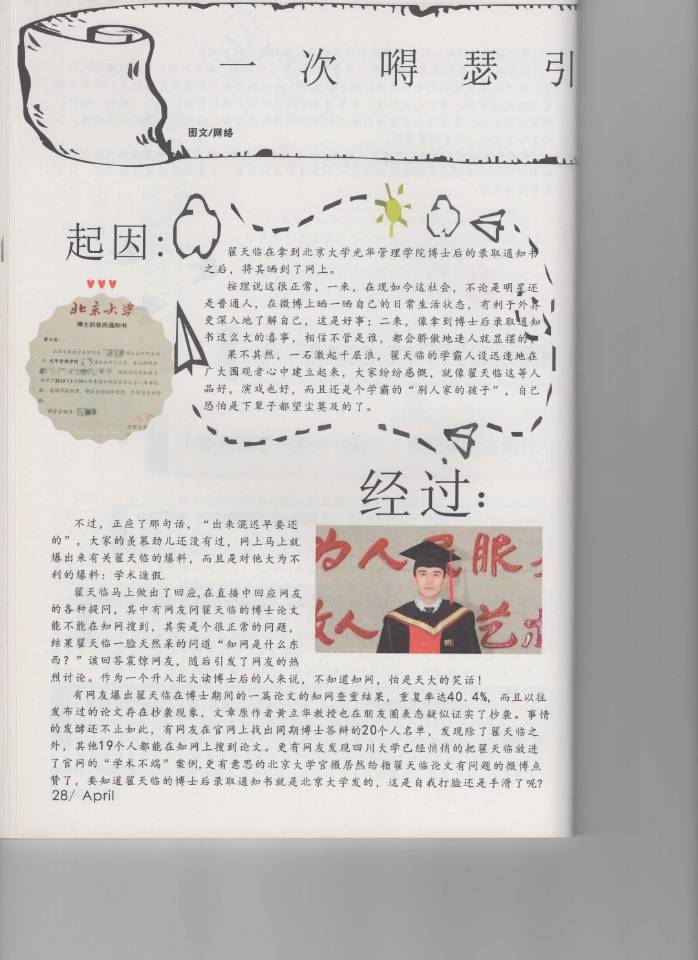 一次嘚瑟引
图文/网络
起因:
翟天临在拿到北京大学光华管理学院博士后的录取通知书
之后，将其晒到了网上。
按理说这很正常，一来，在现如今这社会，不论是明星还
是普通人，在微博上晒一晒自己的日常生活状态，有利于外界
更深入地了解自己，这是好事；二来，像拿到博士后录取通知
书这么大的喜事，相信不管是谁，都会骄傲地逢人就显摆的。
果不其然，一石激起千层浪，翟天临的学霸人设迅速地在
广大围观者心中建立起来，大家纷纷感慨，就像翟天临这等人
品好，演戏也好，而且还是个学霸的“别人家的孩子”，自己
恐怕是下辈子都望尘莫及的了。
北京大学
博士后录用通知书
经过:
不过，正应了那句话，“出来混迟早要还
的”，大家的羡慕劲儿还没有过，网上马上就
爆出来有关翟天临的爆料，而且是对他大为不
利的爆料：学术造假.
翟天临马上做出了回应,在直播中回应网友
的各种提问，其中有网友问翟天临的博士论文
能不能在知网搜到，其实是个很正常的问题，
结果翟天临一脸天然呆的问道“知网是什么东
西？”该回答震惊网友，随后引发了网友的热
烈讨论。作为一个升入北大读博士后的人来说，不知道知网，怕是天大的笑话！
有网友爆出翟天临在博士期间的一篇论文的知网查重结果，重复率达40.4%,而且以往
发布过的论文存在抄袭现象，文章原作者黄立华教授也在朋友圈表态疑似证实了抄袭。事情
的发酵还不止如此，有网友在官网上找出同期博士答辩的20个人名单，发现除了翟天临之
外，其他19个人都能在知网上搜到论文。更有网友发现四川大学已经悄悄的把翟天临放进
了官网的“学术不端”案例,更有意思的北京大学官微居然给指翟天临论文有问题的微博点
赞了，要知道翟天临的博士后录取通知书就是北京大学发的，这是自我打脸还是手滑了呢?
28/ April
为人民服
人
艺术